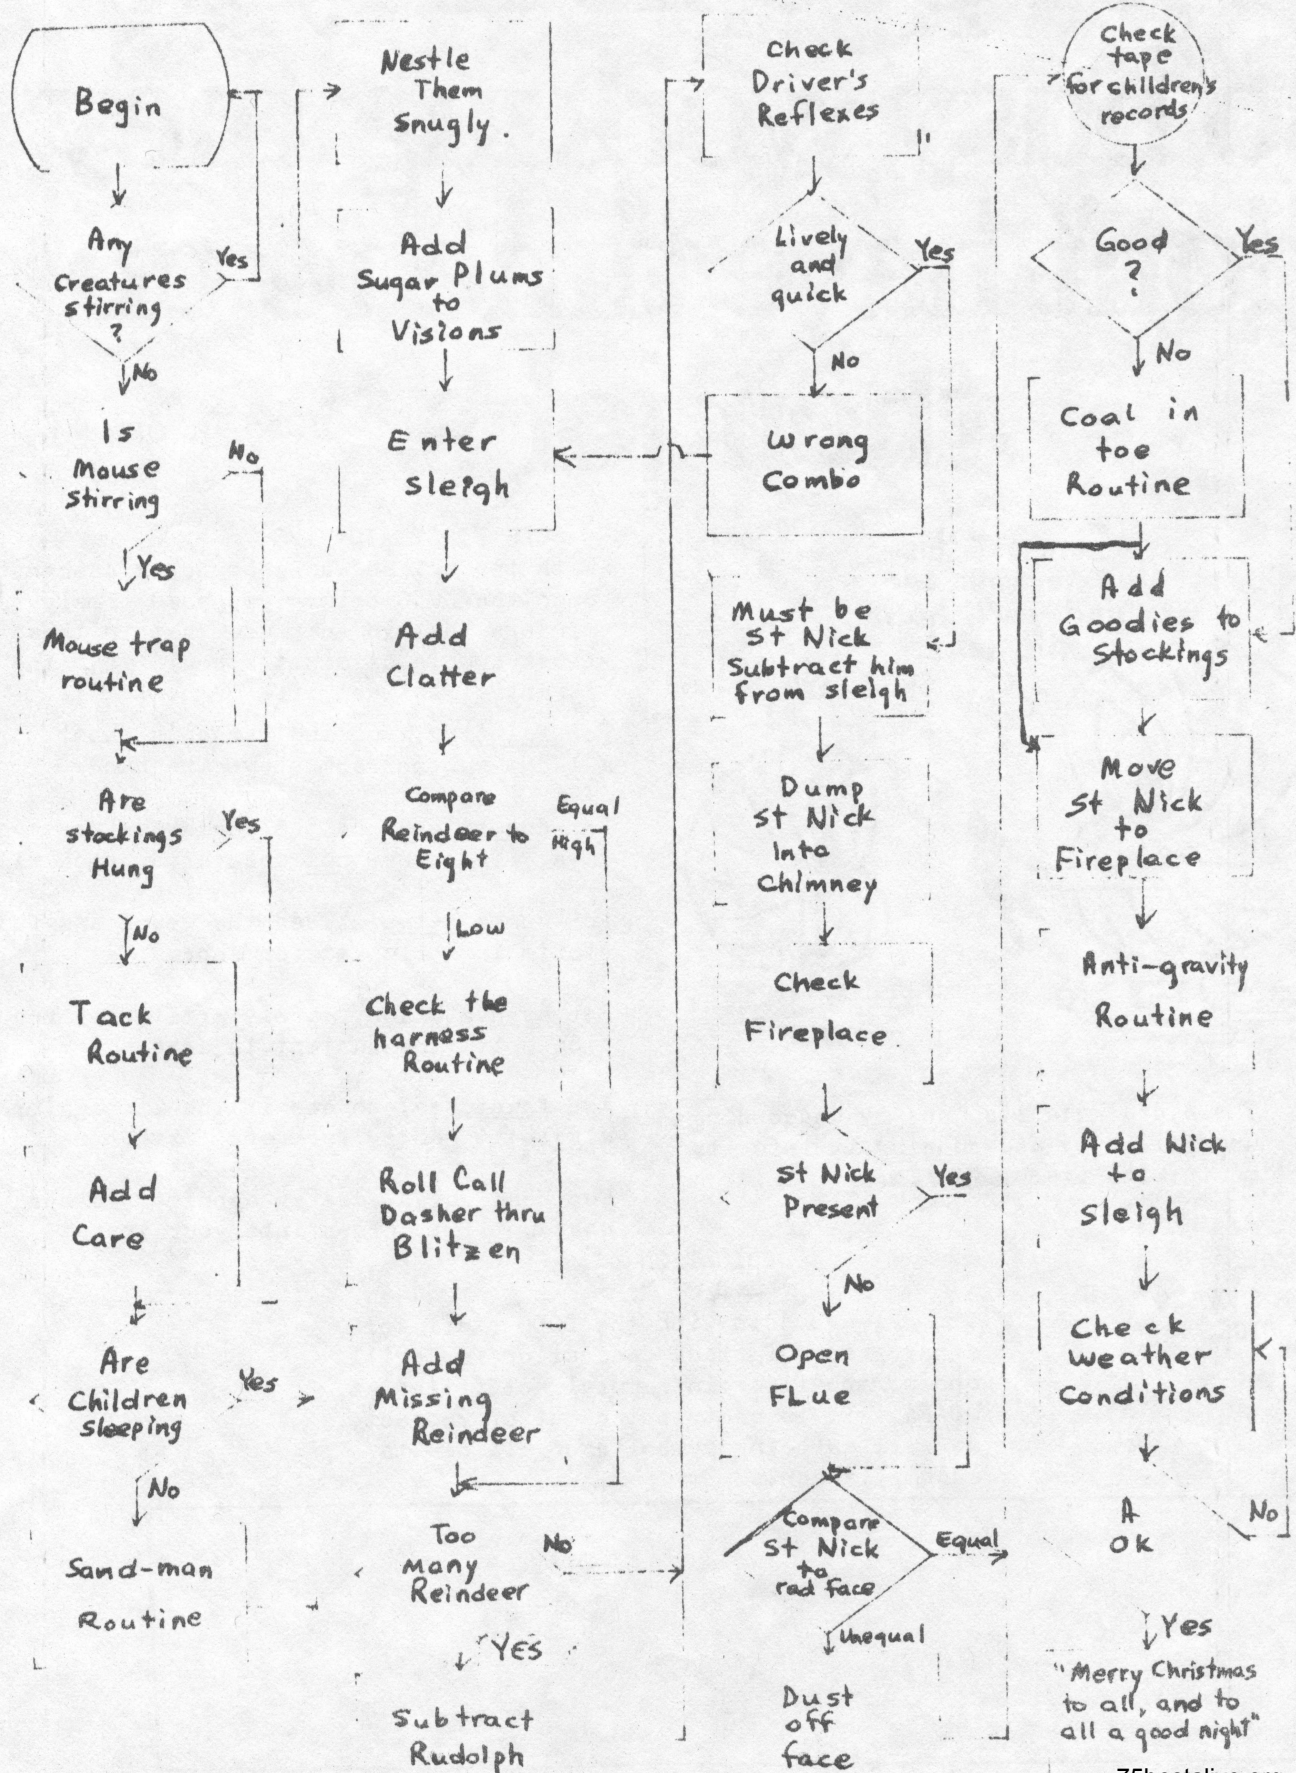 Begin
Any
Creatures
stirring
?
Yes
No
Is
Mouse
Stirring
No
Yes
Mouse trap
routine
Are
stockings
Hung
Yes
No
Tack
Routine
Add
Care
Are
Children
Sleeping
Yes
No
Sand-man
Routine
Nestle
Them
Snugly.
Add
Sugar Plums
to
Visions
Enter
sleigh
Add
Clatter
Compare
Reindeer to
Eight
Equal
High
Low
Check the
harness
Routine
Roll Call
Dasher thru
Blitzen
Add
Missing
Reindeer
Too
Many
Reindeer
No
YES
Subtract
Rudolph
Check
Driver's
Reflexes
Lively
and
quick
Yes
No
Wrong
Combo
Must be
St Nick
Subtract him
from sleigh
Dump
St Nick
Into
Chimney
Check
Fireplace
St Nick
Present
Yes
No
Open
FLue
Compare
St Nick
to
rad face
Equal
Unequal
Dust
off
face
Check
tape
for children's
records
Good
?
Yes
No
Coal in
toe
Routine
Add
Goodies to
Stockings
Move
St Nick
to
Fireplace
Anti-gravity
Routine
Add Nick
to
sleigh
Check
Weather
Conditions
A
OK
No
Yes
"Merry Christmas
to all, and to
all a good night"